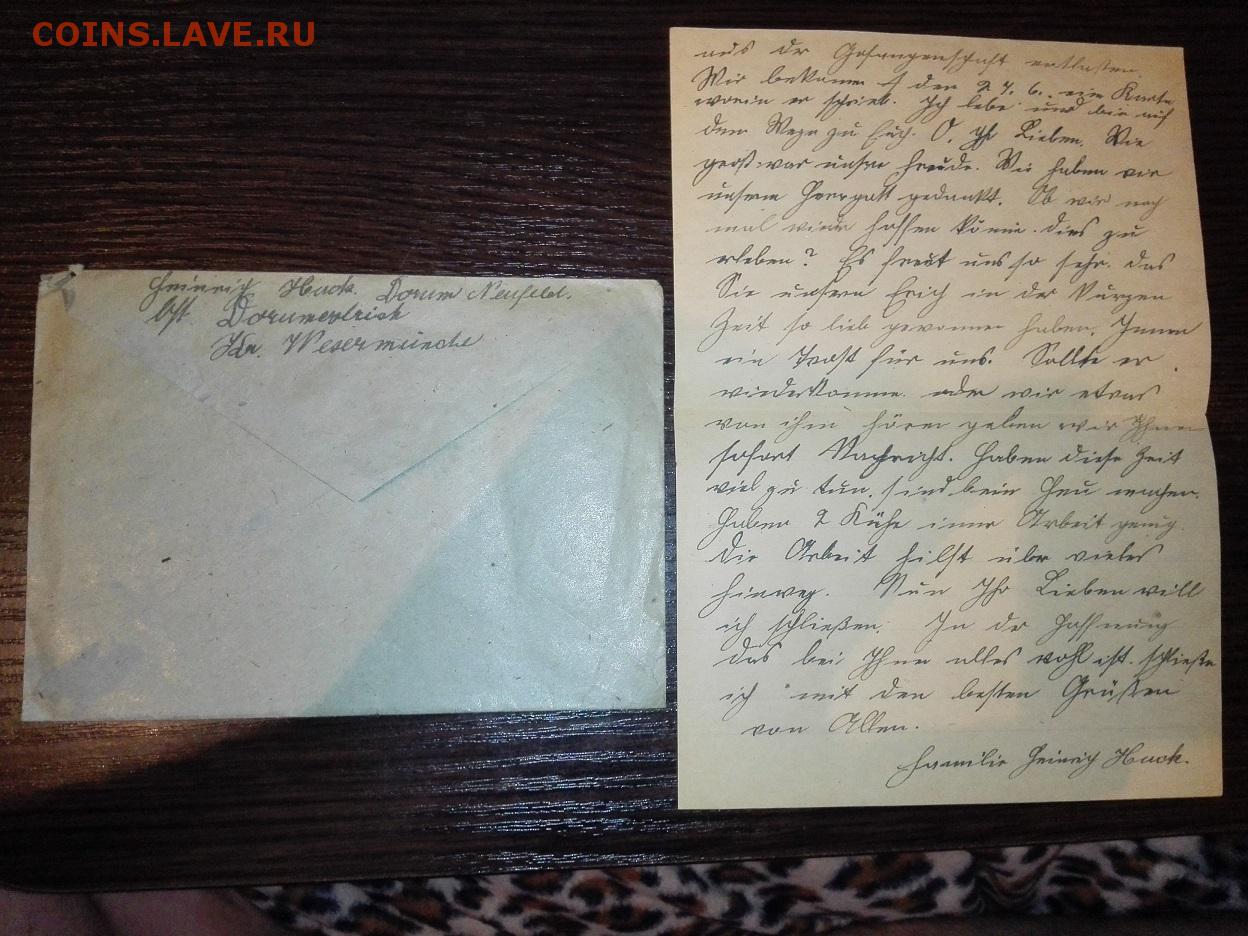 COINS.LAVE.RU
Heinrich Huck Dorum Neufeld.
Dorumerstrich
Wesermünde
aus dr Gefangenschaft entlassen.
Wir bekamen den 27. 6. ein Karte
worin er schrieb. Ich lebe und bin auf
dem Wege zu Euch. O, Ihr Lieben. Wie
groß war unsre Freude. Wie haben wir
unsrem Herrgott gedankt. Ob wir noch
mal wieder hoffen könn dies zu
erleben? Es freut uns so sehr. das
Sie unsern Erich in dr kurzen
Zeit so lieb gewonnen haben.
ein Trost für uns. Sollte er
wiederkomme. oder wir etwas
von ihm hören geben wir Ihnen
sofort Nachricht. Haben diese Zeit
viel zu tun, sind beim Heu machen.
Haben 2 Kühe immer Arbeit genug.
Die Arbeit hilft über vieles
hinweg. Nun Ihr Lieben will
ich schließen. In dr Hoffnung
das bei Ihnen alles wohl ist. schließe
ich mit den besten Grüßen
von Allen.
Familie Heinrich Huck.